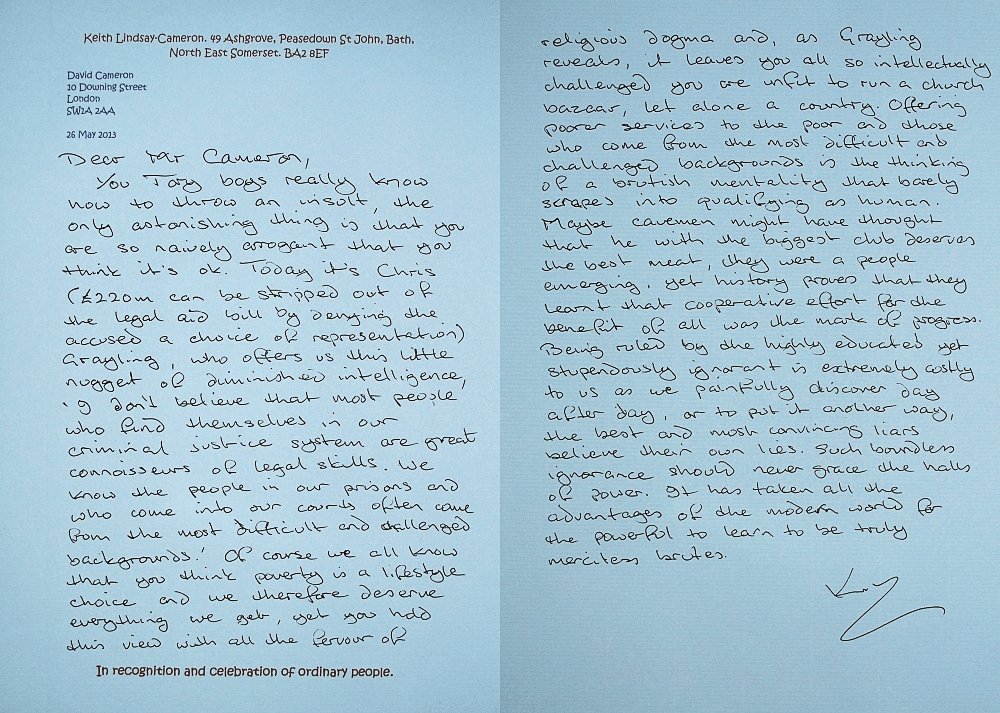 Keith Lindsay-Cameron. 49 Ashgrove, Peasedown St John, Bath,
North East Somerset. BA2 8EF
David Cameron
10 Downing Street
London
SW1A 2AA
26 May 2013
Dear Mr Cameron,
You Tory boys really know
how to throw an insult, the
only astonishing thing is that you
are so naively arrogant that you
think it's ok. Today it's Chris
(£220m can be stripped out of
the legal aid bill by denying the
accused a choice of representation)
Grayling, who offers us this little
nugget of diminished intelligence,
'I don't believe that most people
who find themselves in our
criminal justice system are great
connoisseurs of legal skills. We
know the people in our prisons and
who come into our courts often come
from the most difficult and challenged
backgrounds.' Of course we all know
that you think poverty is a lifestyle
choice and we therefore deserve
everything we get, yet you hold
this view with all the fervour of
In recognition and celebration of ordinary people.
religious dogma and, as Grayling
reveals, it leaves you all so intellectually
challenged you are unfit to run a church
bazaar, let alone a country. Offering
poorer services to the poor and those
who come from the most difficult and
challenged backgrounds is the thinking
of a brutish mentality that barely
scrapes into qualifying as human.
Maybe cavemen might have thought
that he with the biggest club deserves
the best meat, they were a people
emerging, yet history proves that they
learnt that cooperative effort for the
benefit of all was the mark of progress.
Being ruled by the highly educated yet
stupendously ignorant is extremely costly
to us as we painfully discover day
after day, or to put it another way,
the best and most convincing liars
believe their own lies. Such boundless
ignorance should never grace the halls
of power. It has taken all the
advantages of the modern world for
the powerful to learn to be truly
merciless brutes.